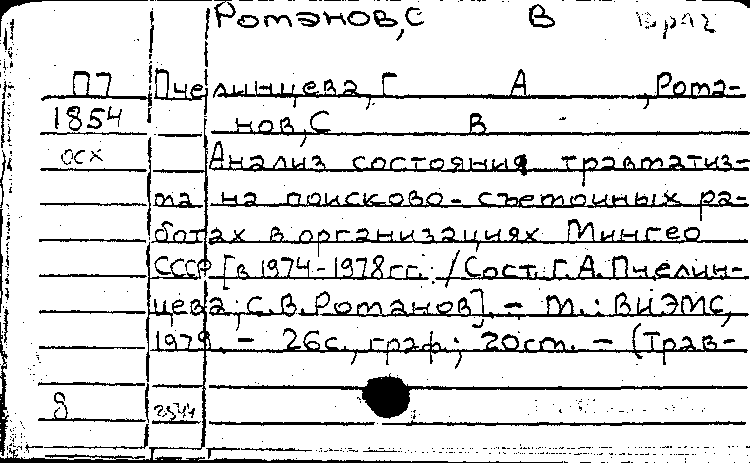 Романов, С В врач
П7 Пчелинцева, Г А , Рома-
1854 нов, С В
осх Анализ состояния травматиз-
ма на поисково-съемочных ра-
ботах в организациях Мингео
СССР [в 1974-1978гг. /Сост. Г.А.Пчелин-
цева, С.В.Романов]. - М.: ВИЭМС,
1979. - 26с., граф; 20см. - (Трав-
8 2544